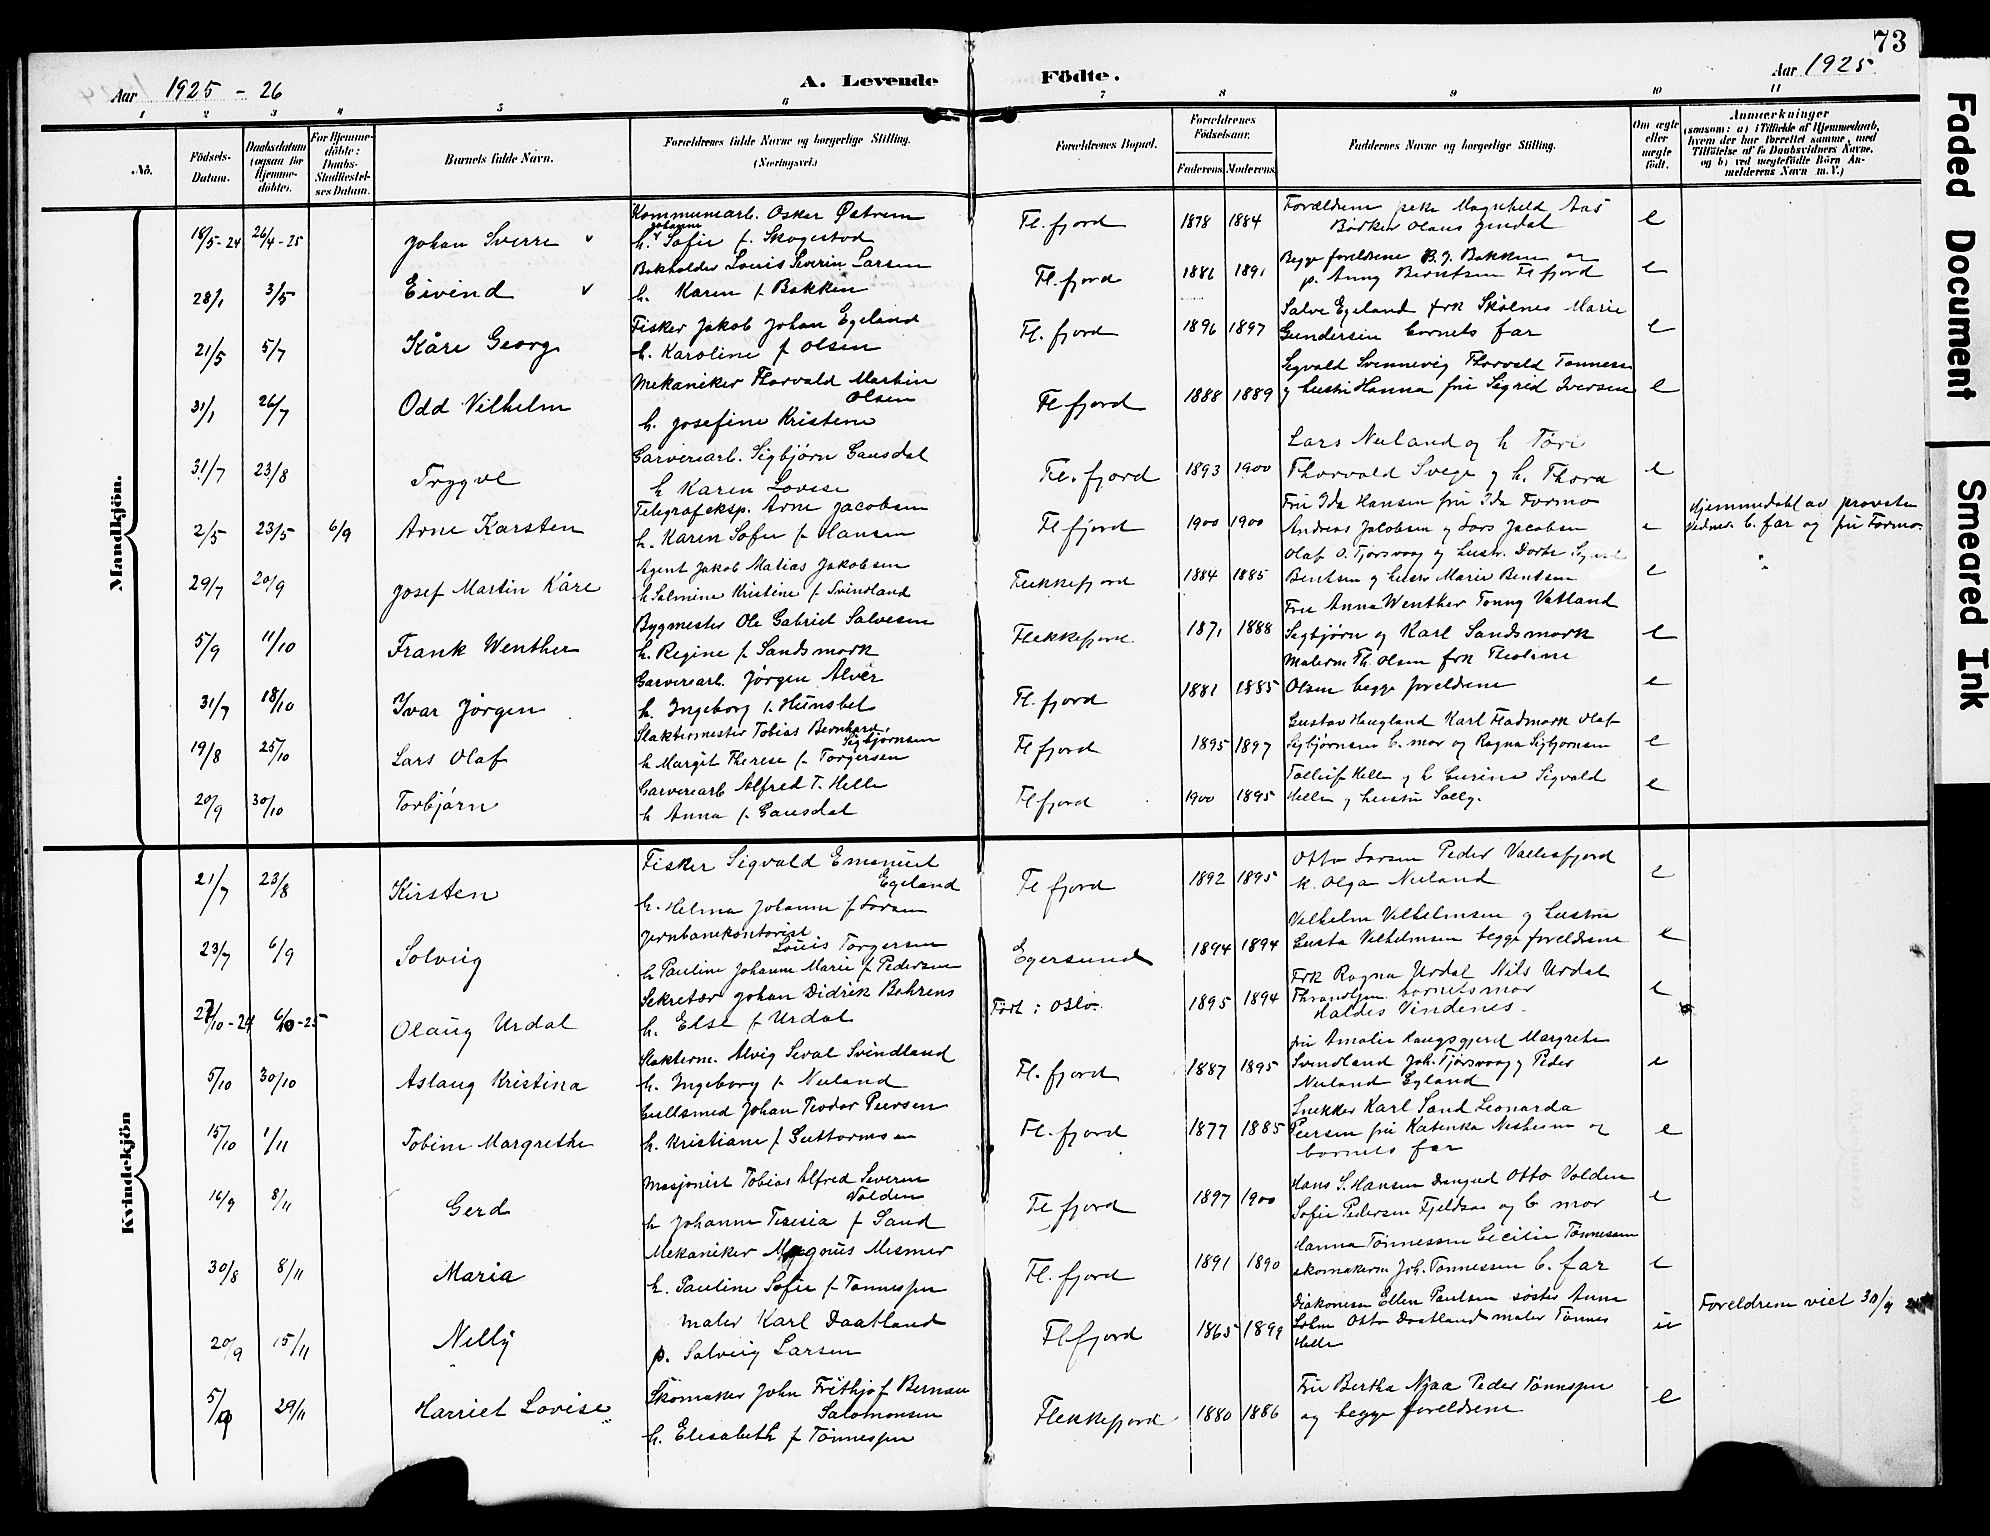 73
Aar 1925 - 26
A. Levende
Födte.
Aar 1925
1 2 3 4 5 6 7 8 9 10 11
No.
Födsels-Datum.
Daabsdatum (ogsaa for Hjemmedöbte).
For Hjemmedöbte: Daabs-Stadfæstelses Datum.
Barnets fulde Navn.
Forældrenes fulde Navne og borgerlige Stilling. (Næringsvei.)
Forældrenes Bopæl.
Forældrenes Födselsaar.
Faderens. Moderens.
Faddernes Navne og borgerlige Stilling.
Om ægte eller uægte födt.
Anmærkninger (saasom: a) i Tilfælde af Hjemmedaab, hvem der har forrettet samme, med Tilföielse af to Daabsvidners Navne, og b) ved uægtefödte Börn Anmelderens Navn m. V.)
Mandkjön.
18/5-24 26/4-25 Johan Sverre v
Kommunearb. Oskar Østrem
h. Johanne Sofie f. Skogestad
Fl. fjord 1878 1884
Forældrene frk Magnhild Aas
Bødker Olaus Gusdal e
28/1 3/5 Eivind v
Bokholder Louis Severin Larsen
h. Karen f. Bakken
Fl. fjord 1886 1891
Begge foreldrene B. J. Bakken og
p. Anny Berntsen Flfjord e
21/5 5/7 Kåre Georg
Fisker Jakob Johan Egeland
h. Karoline f Olsen
Fl. fjord 1896 1897
Salve Egeland frk Skølnes Marie
Gundersen barnets far e
31/1 26/7 Odd Vilhelm
Mekaniker Thorvald Martin
Olsen
h. Josefine Kristene
Fl fjord 1888 1889
Sigvald Svennevig Thorvald Tønness
og hustru Hanna fru Sigrid Iversen e
31/7 23/8 Trygve
Garveriarb. Sigbjørn Gausdal
h Karen Lovise
Fl. fjord 1893 1900
Lars Nuland og h Tori
Thorvald Svege og h. Thora e
2/5 23/5 6/9 Arne Karsten
Telegrafeksp. Arne Jacobsen
h. Karen Sofie f Hansen
Fl fjord 1900 1900
Fru Ida Hansen fru Ida Formo
Andreas Jacobsen og Lars Jacobsen e
Hjemmedøbt av provsten
Vidner b. far og fru Formo.
29/7 20/9 Josef Martin Kåre
Agent Jakob Matias Jakobsen
h Salmine Kristine f Svindland
Flekkefjord 1884 1885
Olaf O. Tjørsvaag og hustr. Dorte Sigurd
Bentsen og hustr Marie Bentsen e
5/9 11/10 Frank Wenther
Bygmester Ole Gabriel Salvesen
h. Regine f Sandsmark
Flekkefjord 1871 1888
Fru Anna Wenther Tonny Vatland
Sigbjørn og Karl Sandsmark e
31/7 18/10 Ivar Jørgen
Garveriarb. Jørgen Alver
h. Ingeborg f. Hunsbet
Fl. fjord 1881 1885
Malerm Th. Olsen frk Theoline
Olsen begge foreldrene e
19/8 25/10 Lars Olaf
Slaktermester Tobias Bernhard
Sigbjørnsen
h Margit Therese f Torgersen
Fl fjord 1895 1897
Gustav Haugland Karl Fladmark Olaf
Sigbjørnsen b. mor og Ragna Sigbjørnsen e
20/9 30/10 Torbjørn
Garveriarb Alfred T. Helle
h Anna f Gausdal
Fl fjord 1900 1895
Tolleif Helle og h Gurina Sigvald
Helle og hustru Solly. e
Kvindekjön
21/7 23/8 Kirsten
Fisker Sigvald Emanuel
Egeland
h. Helma Johanne f Larsen
Fl fjord 1892 1895
Otto Larsen Peder Vallesfjord
k. Olga Nuland e
23/7 6/9 Solveig
Jernbanekontorist
Louis Torgersen
h Pauline Johanne Marie f Pedersen
Egersund 1894 1894
Vilhelm Vilhelmsen og hustru
Gusta Vilhelmsen begge foreldrene e
27/10-24 6/10-25 Olaug Urdal
Sekretær Johan Didrik Bahrens
h. Else f Urdal
Født: Oslo. 1895 1894
Frk Ragna Urdal Nils Urdal
Thrandhjem barnets mor
Haldis Vindenes. e
5/10 30/10 Aslaug Kristina
Slakterm. Alvig Seval Svindland
h. Ingeborg f. Nuland
Fl. fjord 1887 1895
fru Amalie Haugsgjerd Margrete
Svindland Joh. Tjørsvaag og Peder
Nuland Egland e
15/10 1/11 Tobine Margrethe
Gullsmed Johan Teodor Peersen
h. Kristiane f Guttormsen
Fl. fjord 1877 1885
Snekker Karl Sand Leonarda
Peersen fru Katinka Nesheim og
barnets far e
16/9 8/11 Gerd
Masjonist Tobias Alfred Severin
Volden
h Johanne Teresia f Sand
Fl fjord 1897 1900
Hans S. Hansen Otto Volden
Sofie Pedersen Fjeldsaa og b mor e
30/8 8/11 Maria
Mekaniker Magnus Mesmer
h. Pauline Sofie f Tønnessen
Fl. fjord 1891 1890
Hanna Tønnessen Cecilie Tønnessen
skomakerm Joh. Tønnessen b. far e
20/9 15/11 Nelly
maler Karl Daatland
p. Solveig Larsen
Flfjord 1865 1899
Diakonisse Ellen Paulsen søster Anne
Otto Daatland maler Tønnes
Helle u
Foreldrene viet 30/9
5/9 29/11 Harriet Lovise
Skomaker John Frithjof Bernau
Salomonsen
h. Elisabeth f Tønnessen
Flekkefjord 1880 1886
Fru Bertha Njaa Peder Tønnessen
og begge foreldrene e
Faded Document
Smeared Ink